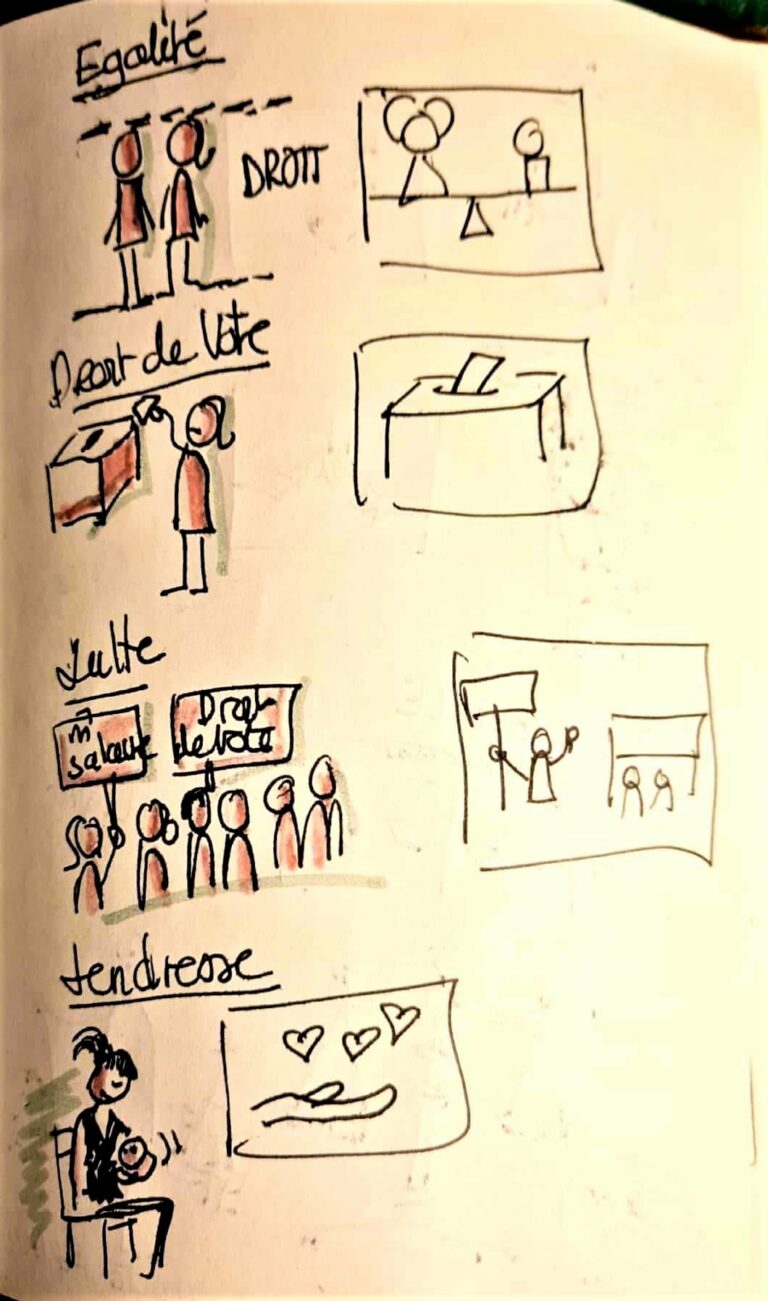 Egalité
DROIT
Droit de Vote
Lutte
m̂
salaire
Droit
de vote
tendresse